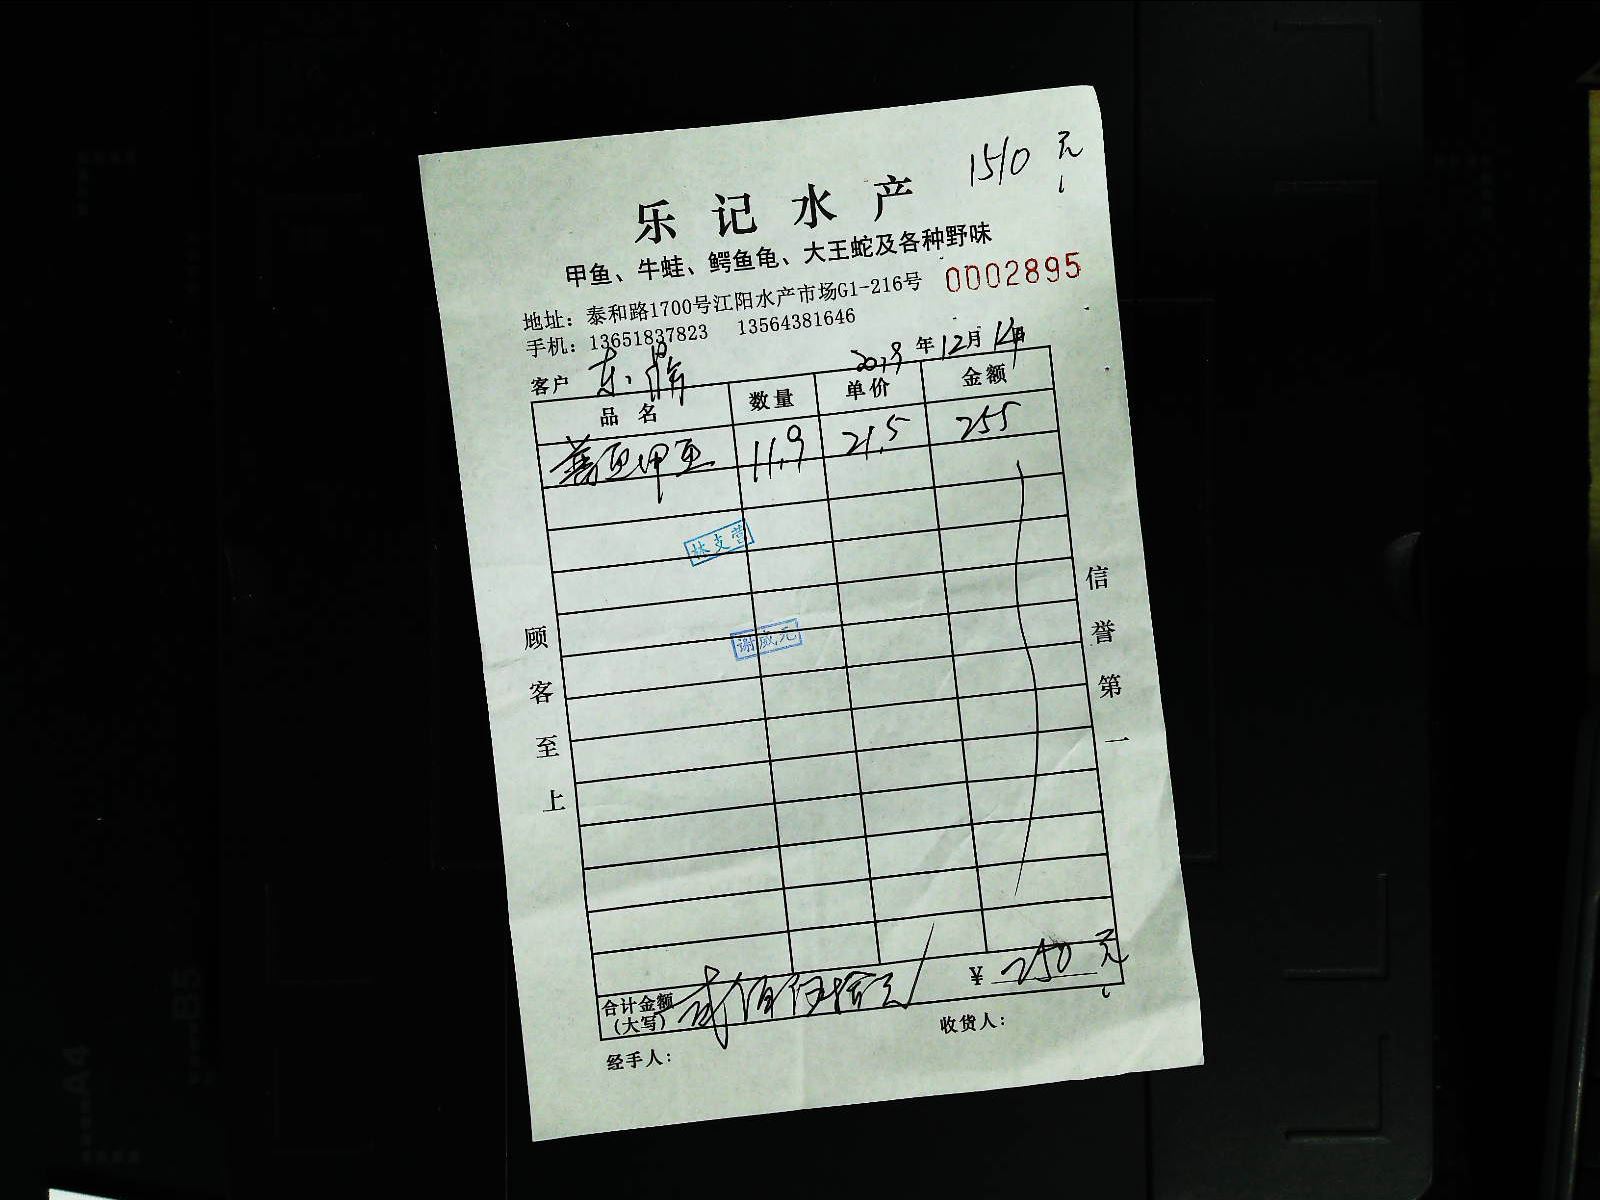 1510元
乐记水产
甲鱼、牛蛙、鳄鱼龟、大王蛇及各种野味
0002895
地址：泰和路1700号江阳水产市场G1-216号
手机：13651837823 13564381646
年12月14日
客户 东
品名 数量 单价 金额
甲鱼 11.9 21.5 255
林支营
谢威元
顾客至上
信誉第一
合计金额（大写） 贰佰伍拾元 ¥250元
收货人：
经手人：